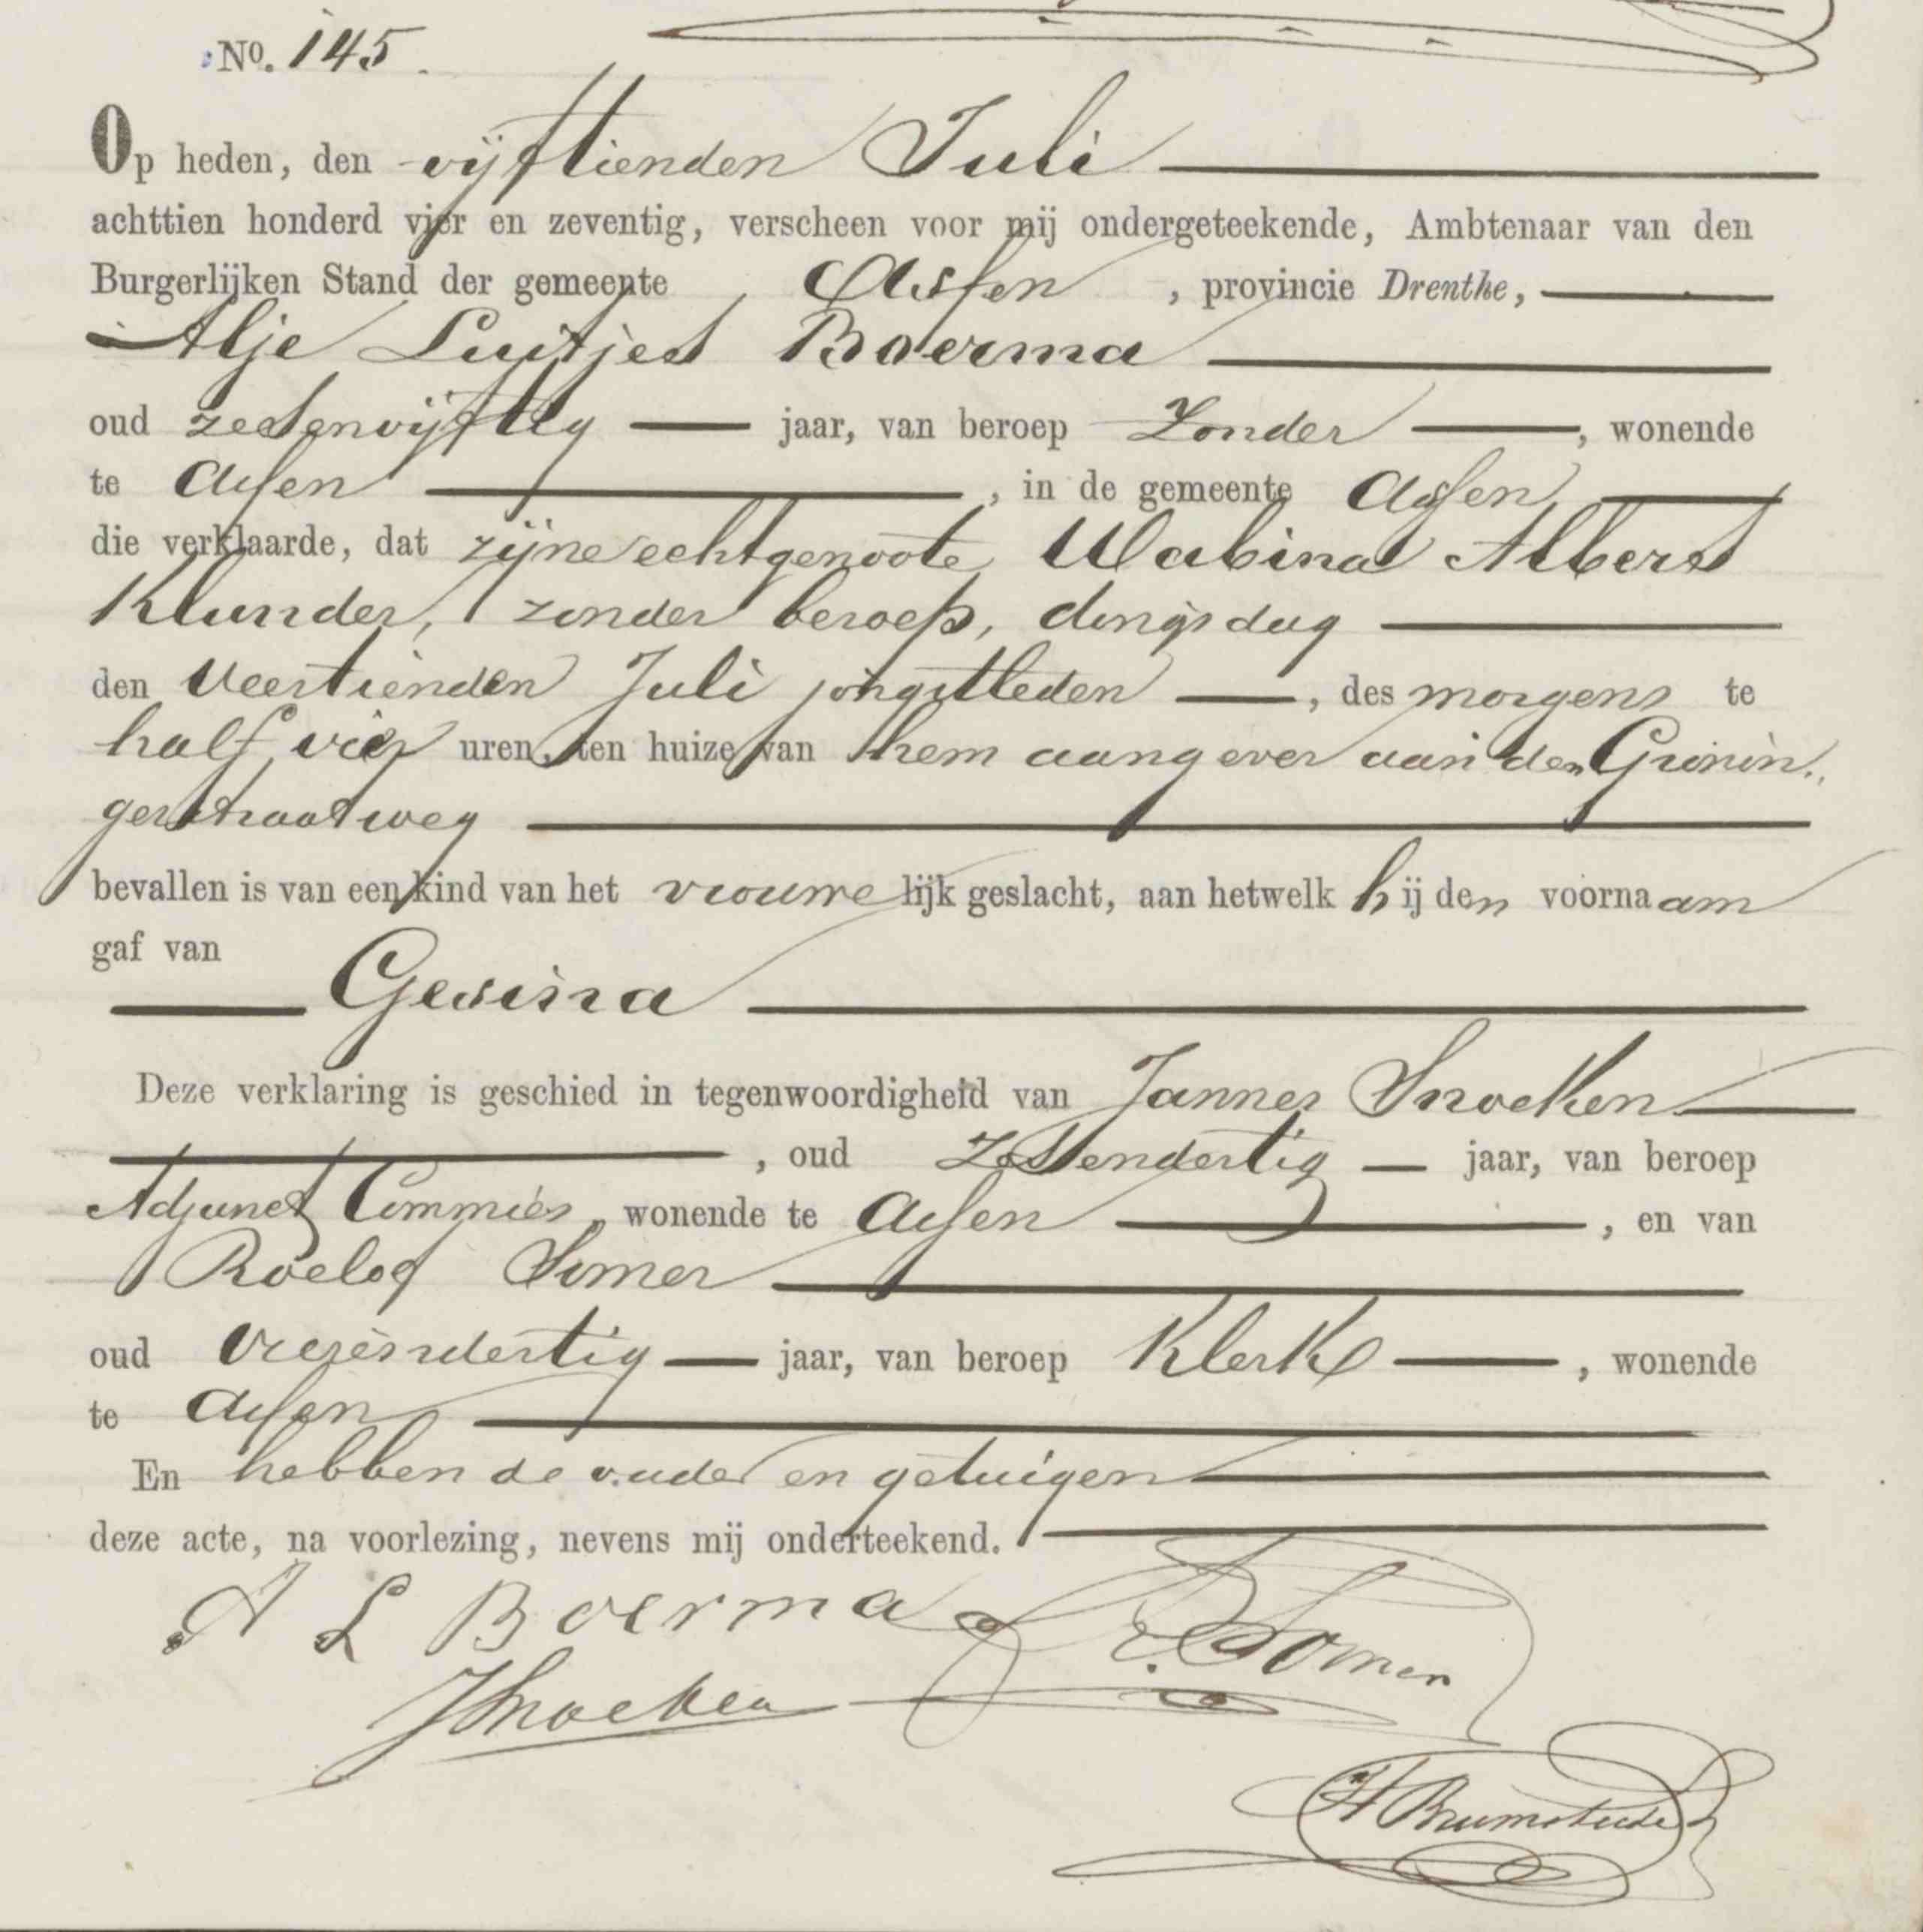 No. 145.
Op heden, den vijftienden Juli
achttien honderd vier en zeventig, verscheen voor mij ondergeteekende, Ambtenaar van den
Burgerlijken Stand der gemeente Assen, provincie Drenthe,
Alje Luitjes Boerma
oud zesenvijftig jaar, van beroep Zonder, wonende
te Assen, in de gemeente Assen
die verklaarde, dat zijne echtgenoote Wabina Albers
Klunder, zonder beroep, dingsdag
den Veertienden Juli jongstleden, des morgens te
half vier uren, ten huize van hem aangever aan den Gronin-
gerstraatweg
bevallen is van een kind van het vrouwelijk geslacht, aan hetwelk hij den voornaam
gaf van
Gesina
Deze verklaring is geschied in tegenwoordigheid van Jannes Snoeken
, oud Zessendertig jaar, van beroep
Adjunct Commies, wonende te Assen, en van
Roelof Somer
oud vierendertig jaar, van beroep Klerk, wonende
te Assen
En hebben de vader en getuigen
deze acte, na voorlezing, nevens mij onderteekend.
A L Boerma R. Somer
J Snoeken